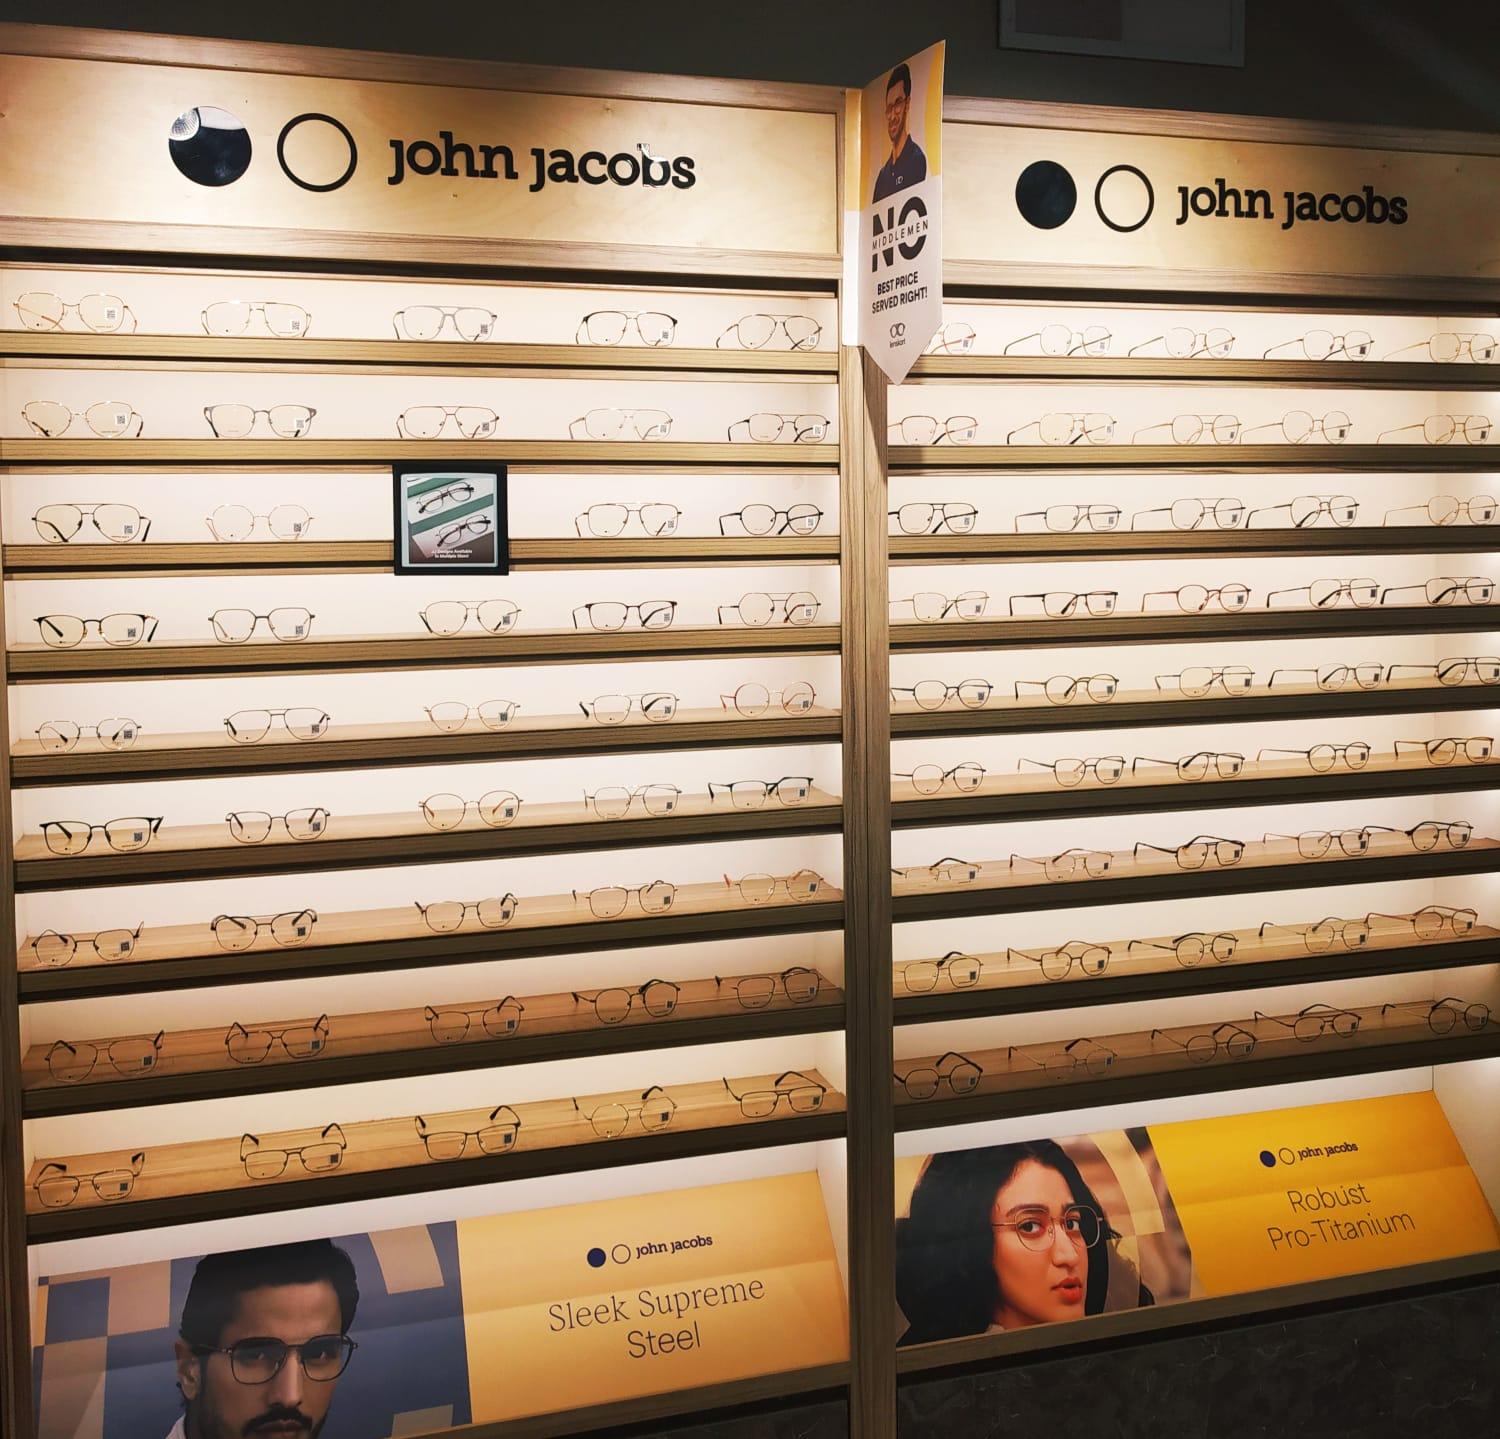 john jacobs
NO
MIDDLEMEN
BEST PRICE
SERVED RIGHT!
lenskart
john jacobs
JJ Designs Available
in Multiple Sizes!
john jacobs
Sleek Supreme
Steel
john jacobs
Robust
Pro-Titanium